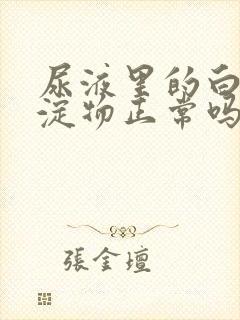 尿液里的白
淀物正常吗
張金壇